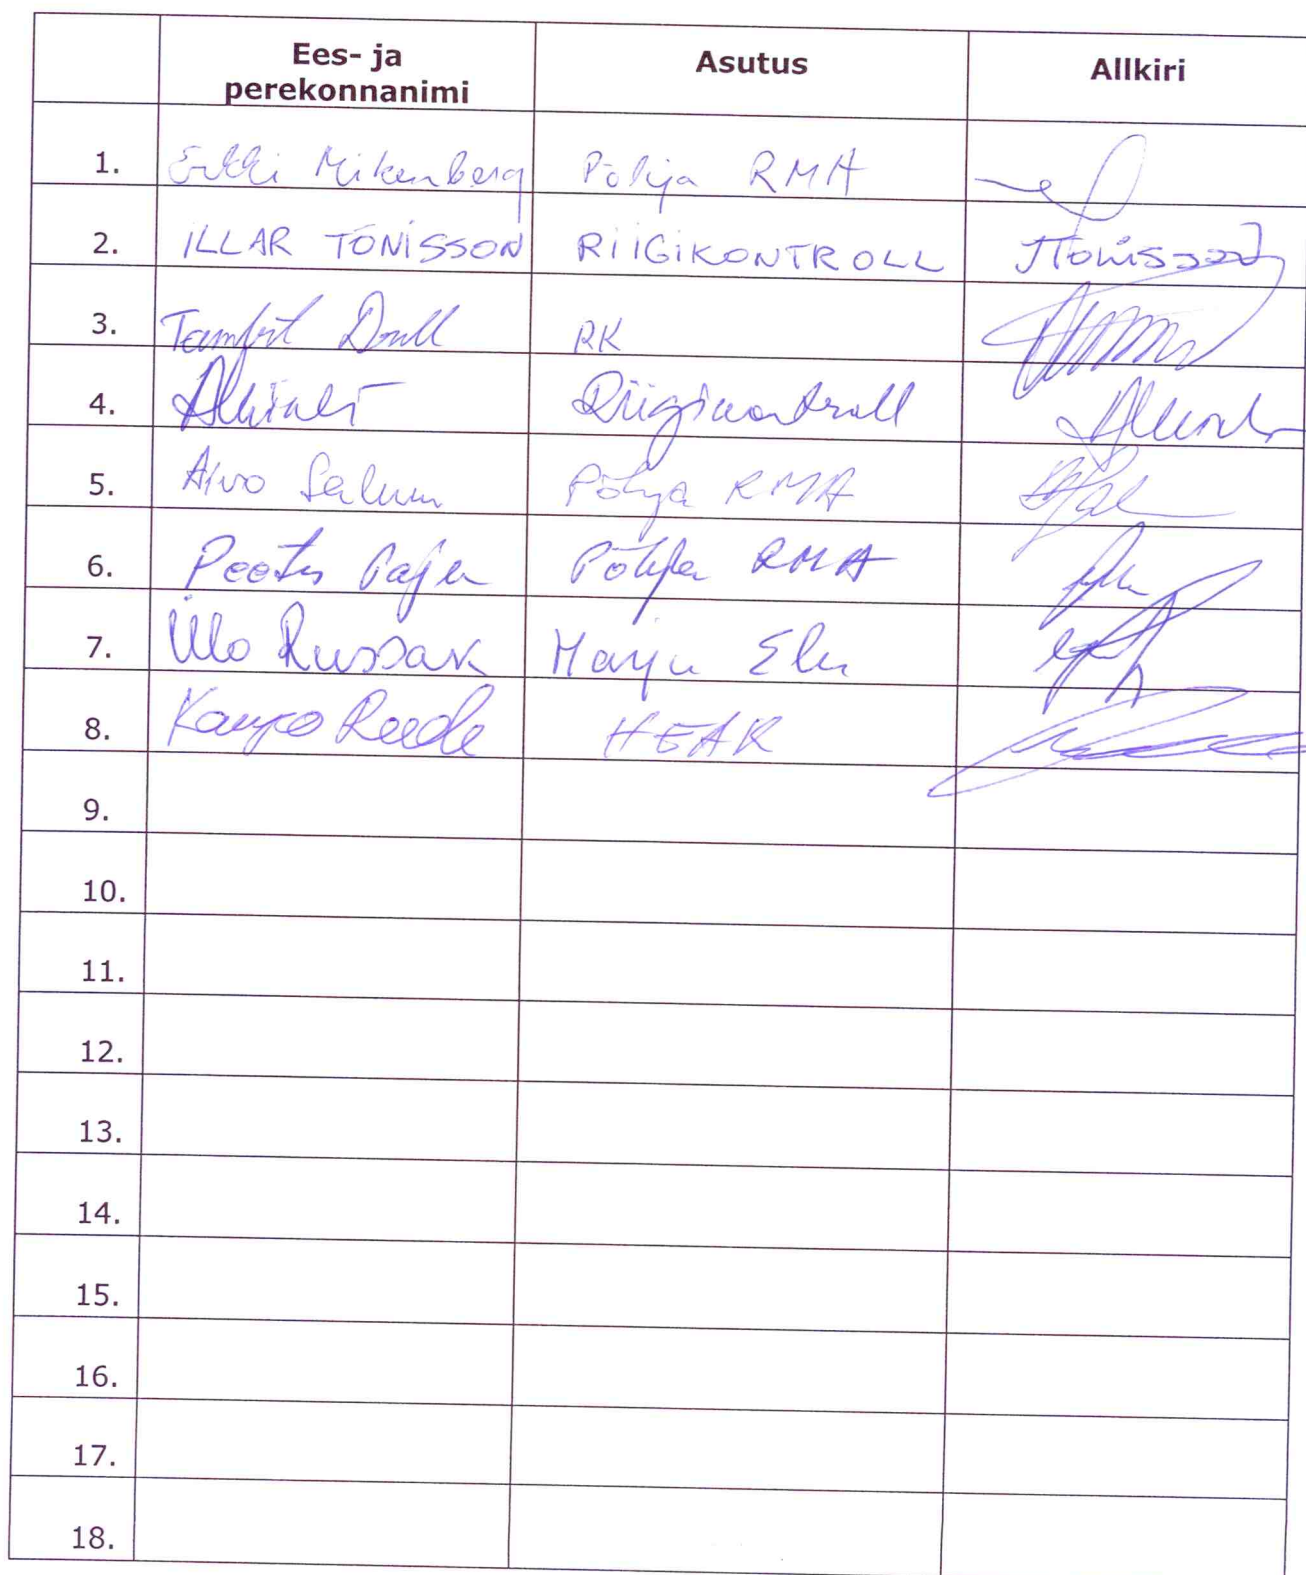 Ees- ja perekonnanimi Asutus Allkiri
1. Erkki Mikenberg Põhja RMA
2. ILLAR TÕNISSON RIIGIKONTROLL ITõnisson
3. Tambet Drell RK
4. Riigikontroll
5. Aivo Salum Põhja RMA
6. Peeter Paju Põhja RMA
7. Ülo Russak Harju Elu
8. Kaupo Reede HEAK
9.
10.
11.
12.
13.
14.
15.
16.
17.
18.